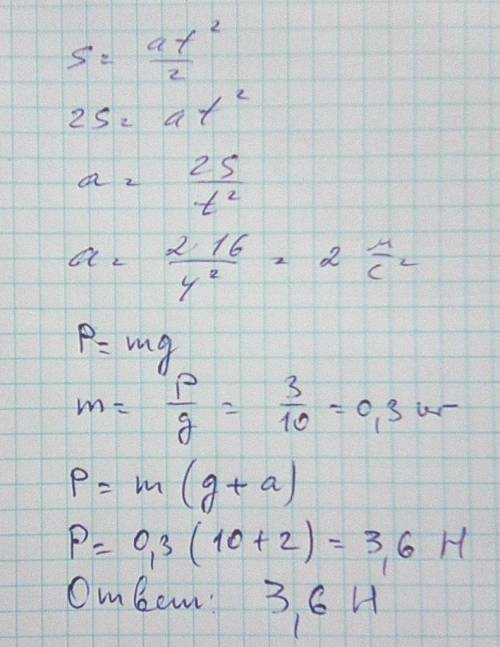 S = at²/2
2S = at²
a = 2S/t²
a = 2·16/4² = 2 м/с²
P = mg
m = P/g = 3/10 = 0,3 кг
P = m (g + a)
P = 0,3 (10 + 2) = 3,6 Н
Ответ: 3,6 Н